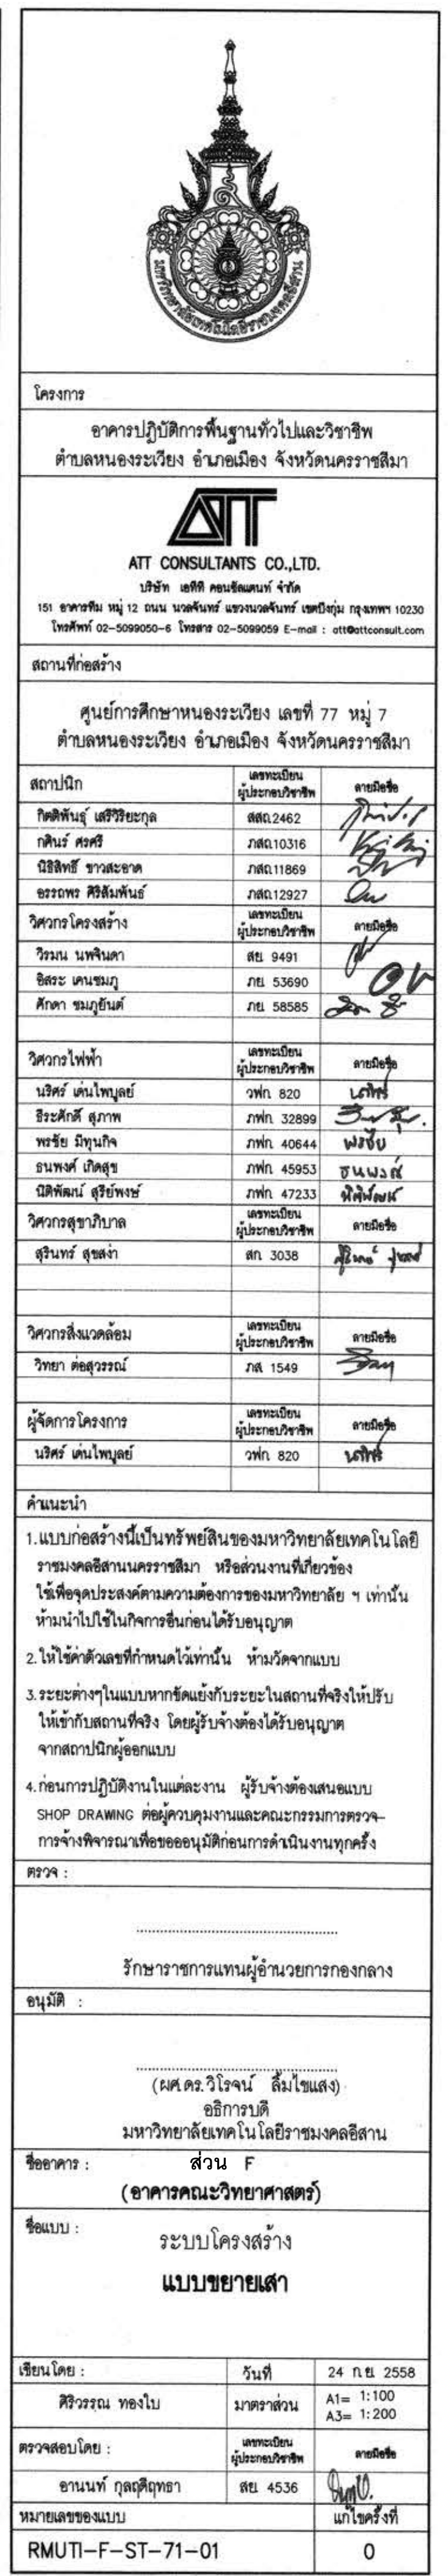 มหาวิทยาลัยเทคโนโลยีราชมงคลอีสาน
โครงการ
อาคารปฏิบัติการพื้นฐานทั่วไปและวิชาชีพ
ตำบลหนองระเวียง อำเภอเมือง จังหวัดนครราชสีมา
ATT
ATT CONSULTANTS CO.,LTD.
บริษัท เอทีที คอนซัลแตนท์ จำกัด
151 อาคารทีม หมู่ 12 ถนน นวลจันทร์ แขวงนวลจันทร์ เขตบึงกุ่ม กรุงเทพฯ 10230
โทรศัพท์ 02-5099050-6 โทรสาร 02-5099059 E-mail : att@attconsult.com
สถานที่ก่อสร้าง
ศูนย์การศึกษาหนองระเวียง เลขที่ 77 หมู่ 7
ตำบลหนองระเวียง อำเภอเมือง จังหวัดนครราชสีมา
สถาปนิก เลขทะเบียนผู้ประกอบวิชาชีพ ลายมือชื่อ
กิตติพันธุ์ เสรีวิริยะกุล สสถ.2462
กศินร์ ศรศรี ภสถ.10316
นิธิสิทธิ์ ขาวสะอาด ภสถ.11869
อรรถพร ศิริสัมพันธ์ ภสถ.12927
วิศวกรโครงสร้าง เลขทะเบียนผู้ประกอบวิชาชีพ ลายมือชื่อ
วิรมน นพจินดา สย. 9491
อิสระ เคนชมภู ภย. 53690
ศักดา ชมภูยันต์ ภย. 58585
วิศวกรไฟฟ้า เลขทะเบียนผู้ประกอบวิชาชีพ ลายมือชื่อ
นริศร์ เด่นไพบูลย์ วฟก. 820
ธีระศักดิ์ สุภาพ ภฟก. 32899
พรชัย มีทุนกิจ ภฟก. 40644 พรชัย
ธนพงศ์ เกิดสุข ภฟก. 45953 ธนพงศ์
นิติพัฒน์ สุรีย์พงษ์ ภฟก. 47233
วิศวกรสุขาภิบาล เลขทะเบียนผู้ประกอบวิชาชีพ ลายมือชื่อ
สุรินทร์ สุขสง่า สก. 3038
วิศวกรสิ่งแวดล้อม เลขทะเบียนผู้ประกอบวิชาชีพ ลายมือชื่อ
วิทยา ต่อสุวรรณ์ ภส. 1549
ผู้จัดการโครงการ เลขทะเบียนผู้ประกอบวิชาชีพ ลายมือชื่อ
นริศร์ เด่นไพบูลย์ วฟก. 820
คำแนะนำ
1.แบบก่อสร้างนี้เป็นทรัพย์สินของมหาวิทยาลัยเทคโนโลยี
ราชมงคลอีสานนครราชสีมา หรือส่วนงานที่เกี่ยวข้อง
ใช้เพื่อจุดประสงค์ตามความต้องการของมหาวิทยาลัย ฯ เท่านั้น
ห้ามนำไปใช้ในกิจการอื่นก่อนได้รับอนุญาต
2.ให้ใช้ค่าตัวเลขที่กำหนดไว้เท่านั้น ห้ามวัดจากแบบ
3.ระยะต่างๆในแบบหากขัดแย้งกับระยะในสถานที่จริงให้ปรับ
ให้เข้ากับสถานที่จริง โดยผู้รับจ้างต้องได้รับอนุญาต
จากสถาปนิกผู้ออกแบบ
4.ก่อนการปฏิบัติงานในแต่ละงาน ผู้รับจ้างต้องเสนอแบบ
SHOP DRAWING ต่อผู้ควบคุมงานและคณะกรรมการตรวจ-
การจ้างพิจารณาเพื่อขออนุมัติก่อนการดำเนินงานทุกครั้ง
ตรวจ :
รักษาราชการแทนผู้อำนวยการกองกลาง
อนุมัติ :
(ผศ.ดร.วิโรจน์ ลิ้มไขแสง)
อธิการบดี
มหาวิทยาลัยเทคโนโลยีราชมงคลอีสาน
ชื่ออาคาร : ส่วน F
(อาคารคณะวิทยาศาสตร์)
ชื่อแบบ : ระบบโครงสร้าง
แบบขยายเสา
เขียนโดย : วันที่ 24 ก.ย. 2558
ศิริวรรณ ทองใบ มาตราส่วน A1= 1:100
A3= 1:200
ตรวจสอบโดย : เลขทะเบียนผู้ประกอบวิชาชีพ ลายมือชื่อ
อานนท์ กุลฤดีฤทธา สย. 4536
หมายเลขของแบบ แก้ไขครั้งที่
RMUTI-F-ST-71-01 0